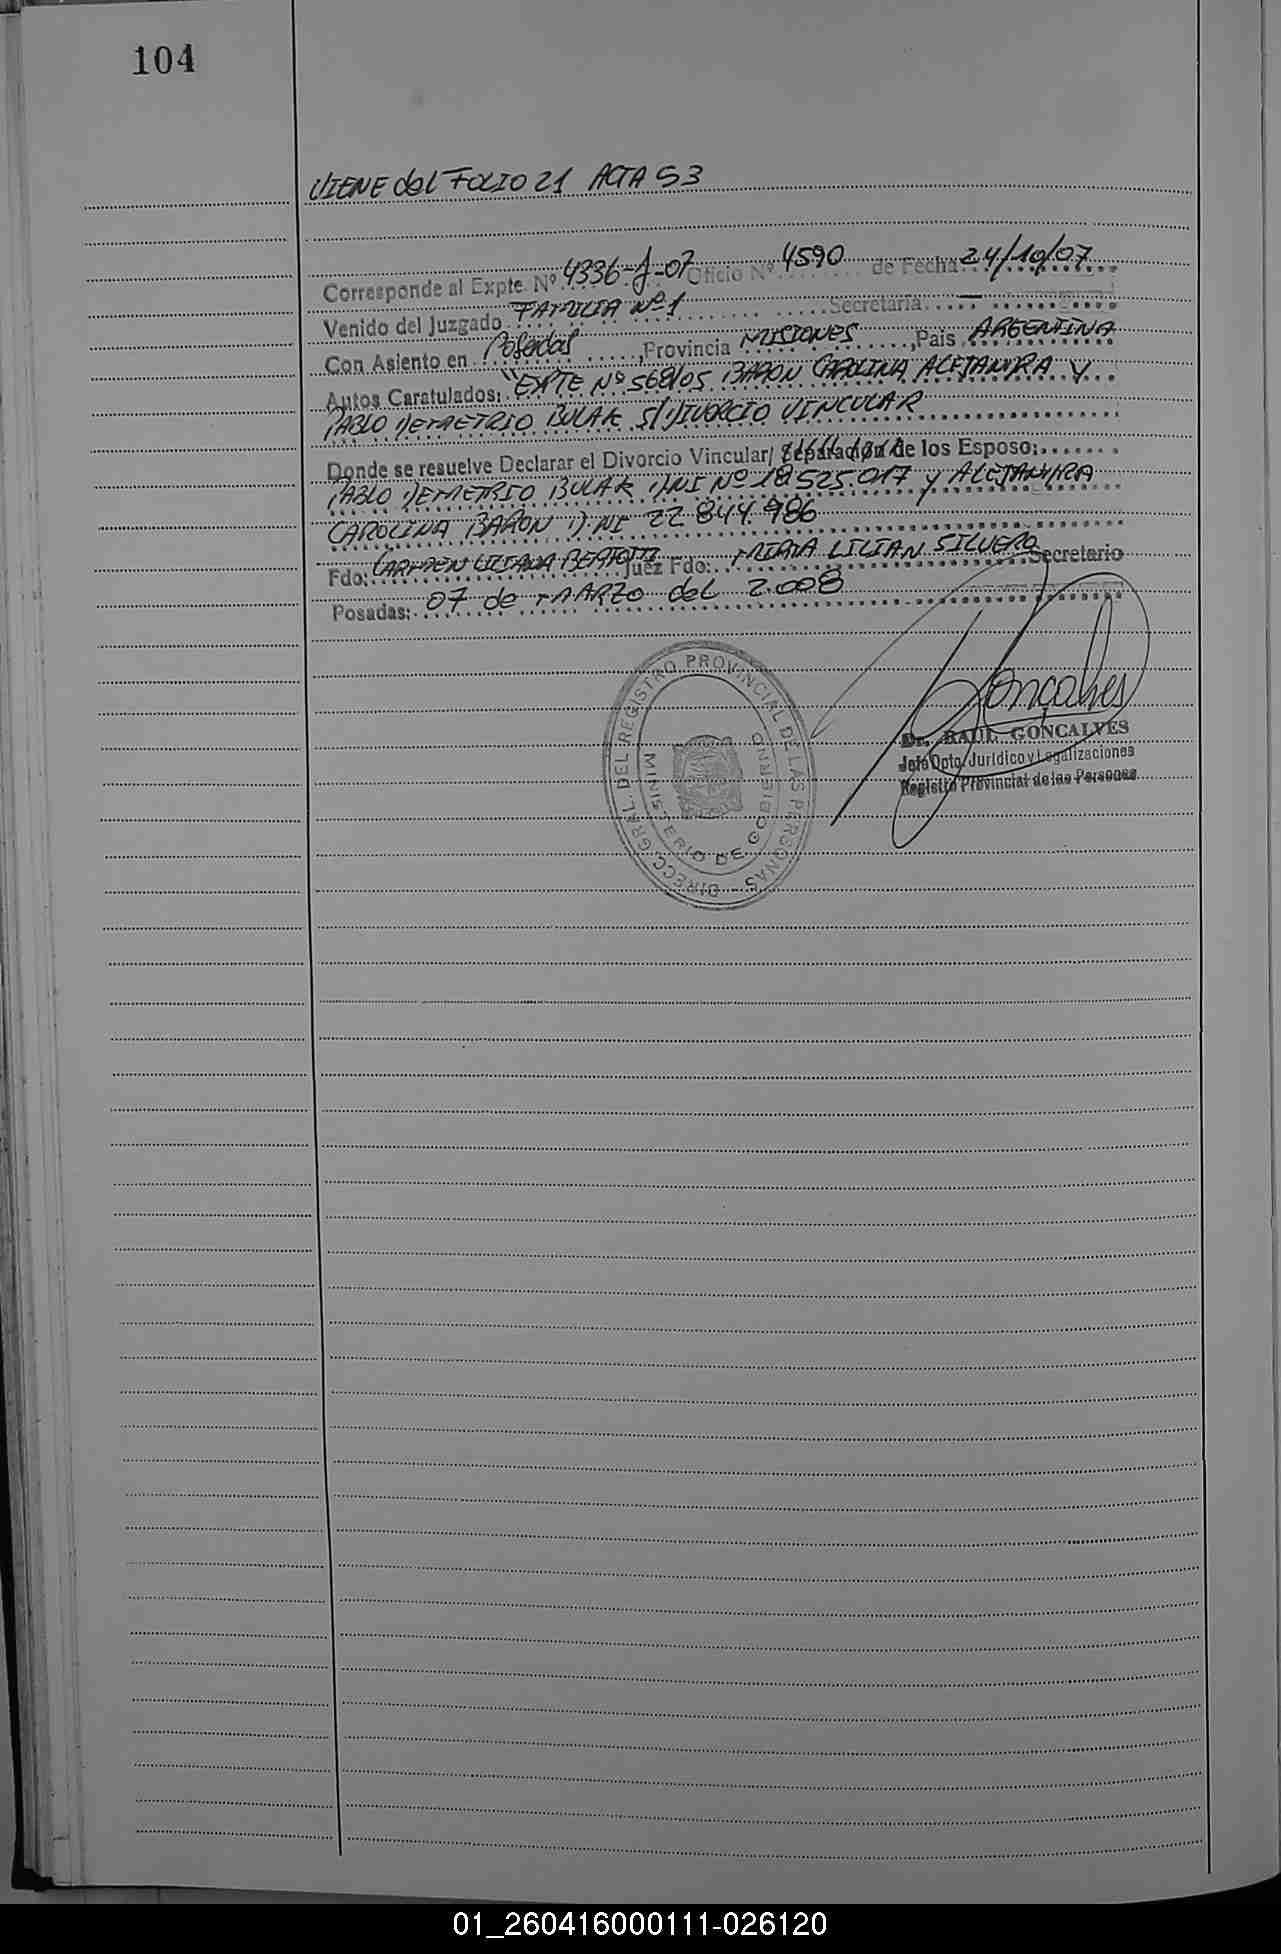 104
VIENE del FOLIO 21 ACTA 53
Corresponde al Expte Nº 4336-J-07 Oficio Nº 4590 de Fecha 24/10/07
Venido del Juzgado FAMILIA Nº 1 Secretaria: —
Con Asiento en Posadas, Provincia MISIONES, Pais ARGENTINA
Autos Caratulados: "EXPTE Nº 568/05 BARON CAROLINA ALEJANDRA Y
PABLO DEMETRIO BULAK S/ DIVORCIO VINCULAR
Donde se resuelve Declarar el Divorcio Vincular/ Separación de los Esposo:
PABLO DEMETRIO BULAK DNI Nº 18525.017 y ALEJANDRA
CAROLINA BARON D.NI 22 844.986
Fdo: CARMEN LILIANA Juez Fdo: MIRTA LILIAN SILVERO Secretario
Posadas: 07 de MARZO del 2.008
DIRECC. GRAL. DEL REGISTRO PROVINCIAL DE LAS PERSONAS
MINISTERIO DE GOBIERNO
Gonçalves
Dr. RAUL GONCALVES
Jefe Dpto. Jurídico y Legalizaciones
Registro Provincial de las Personas
01_260416000111-026120